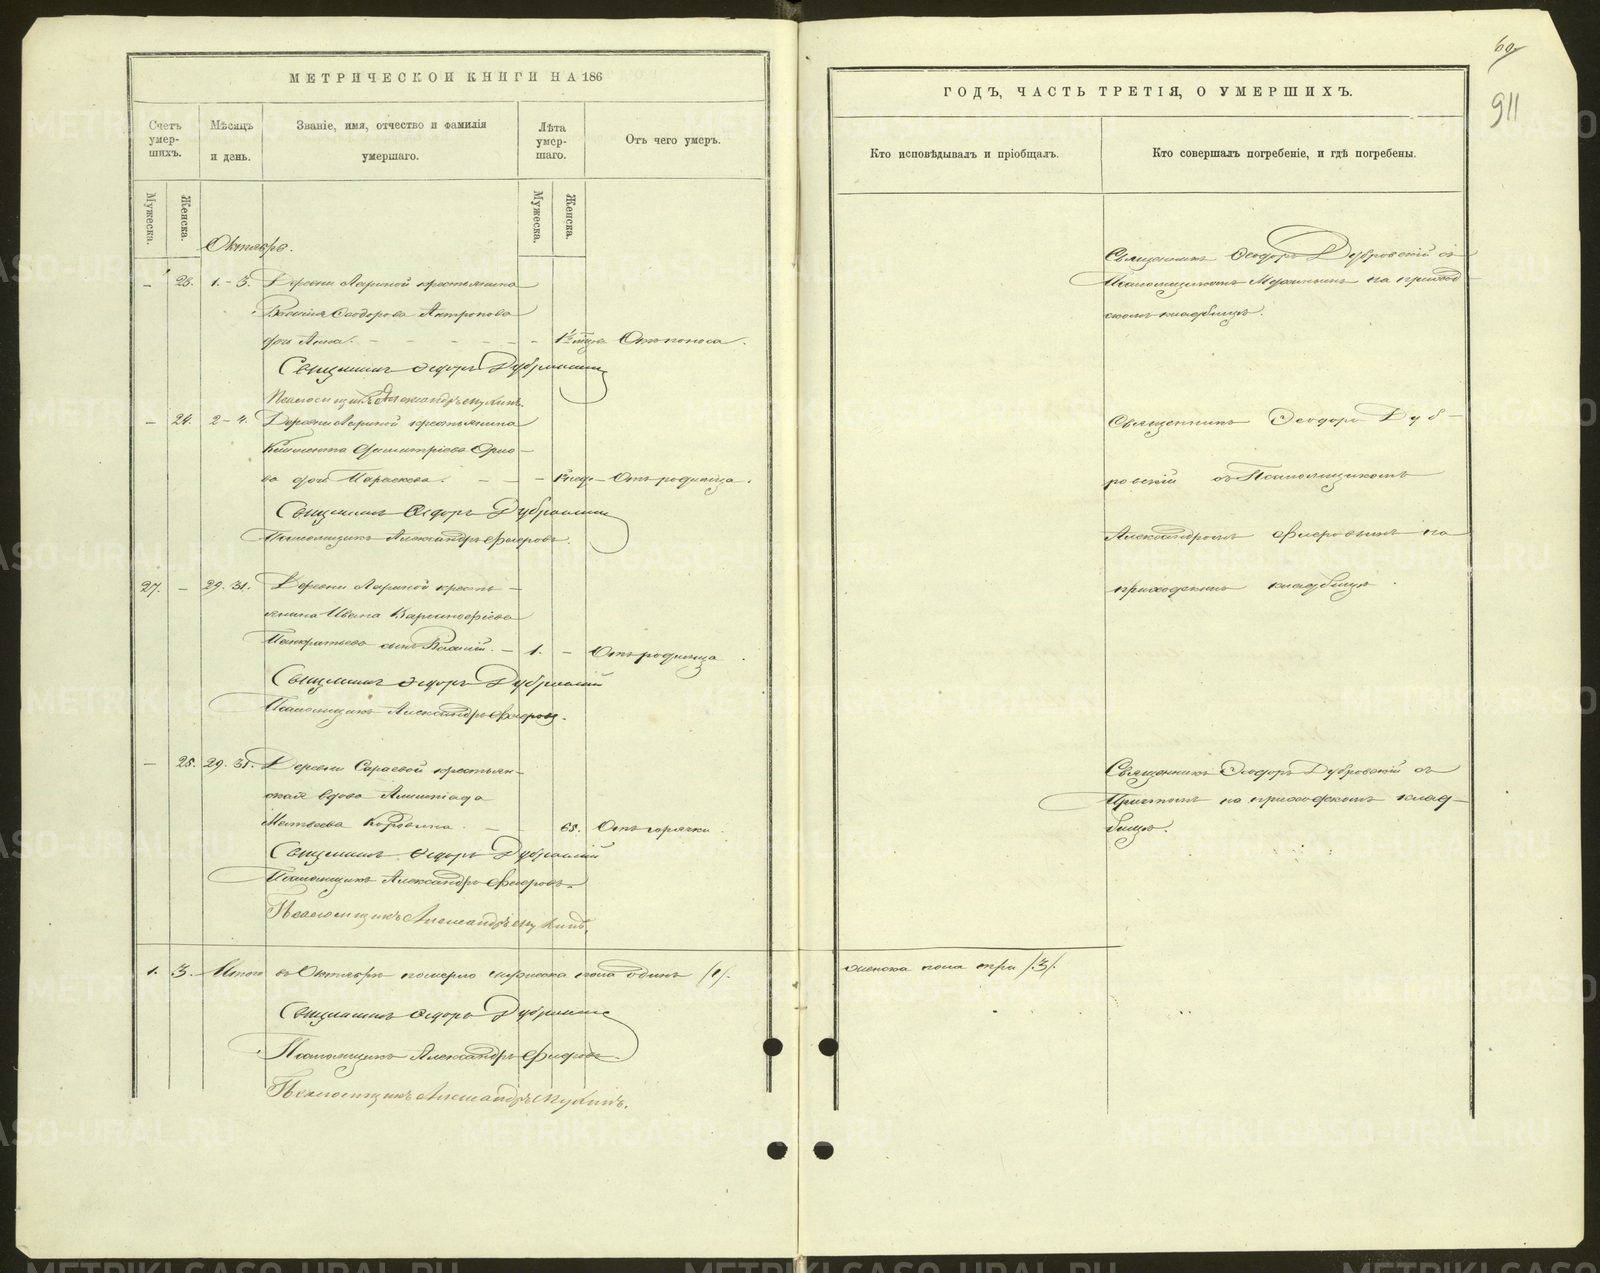 МЕТРИЧЕСКОЙ КНИГИ НА 186
Счетъ умер-шихъ.
Мѣсяцъ и день.
Званіе, имя, отчество и фамилія умершаго.
Лѣта умер-шаго.
Отъ чего умеръ.
Мужеска.
Женска.
Мужеска.
Женска.
Октябрь.
– 23. 1.–3. Деревни Лариной крестьянина
Василія Ѳеодорова Антропова
дочь Анна. – – – – – Отъ поноса.
Священникъ Ѳедоръ Дубровскій
– 24. 2–4. Деревни Лариной крестьянина
Климента Димитріева Орло–
ва дочь Параскева. – – – Отъ родимца.
Священникъ Ѳедоръ Дубровскій
Псаломщикъ Александръ Флеровъ.
27. – 29. 31. Деревни Лариной кресть–
янина Ивана
Панкратьева сынъ – 1. – Отъ родимца.
Священникъ Ѳедоръ Дубровскій
Псаломщикъ Александръ Флеровъ.
– 25. 29. 31. Деревни Сараевой крестьян–
ская вдова
Матвеева – – 65. Отъ горячки.
Священникъ Ѳедоръ Дубровскій
Псаломщикъ Александръ Флеровъ.
Псаломщикъ Александръ
1. 3. Итого въ Октябрѣ померло мужеска пола одинъ /1/.
Священникъ Ѳедоръ Дубровскій
Псаломщикъ Александръ Флеровъ
Псаломщикъ Александръ
60
911
ГОДЪ, ЧАСТЬ ТРЕТІЯ, О УМЕРШИХЪ.
Кто исповѣдывалъ и пріобщалъ.
Кто совершалъ погребеніе, и гдѣ погребены.
Священникъ Ѳеодоръ Дубровскій съ
Псаломщикомъ на приход
скомъ кладбищѣ.
Священникъ Ѳеодоръ Дуб–
ровскій съ Псаломщикомъ
Александромъ Флеровымъ на
приходскомъ кладбищѣ.
Священникъ Ѳеодоръ Дубровскій съ
Причтомъ на приходскомъ клад–
бищѣ.
женска пола три /3/.
METRIKI.GASO-URAL.RU